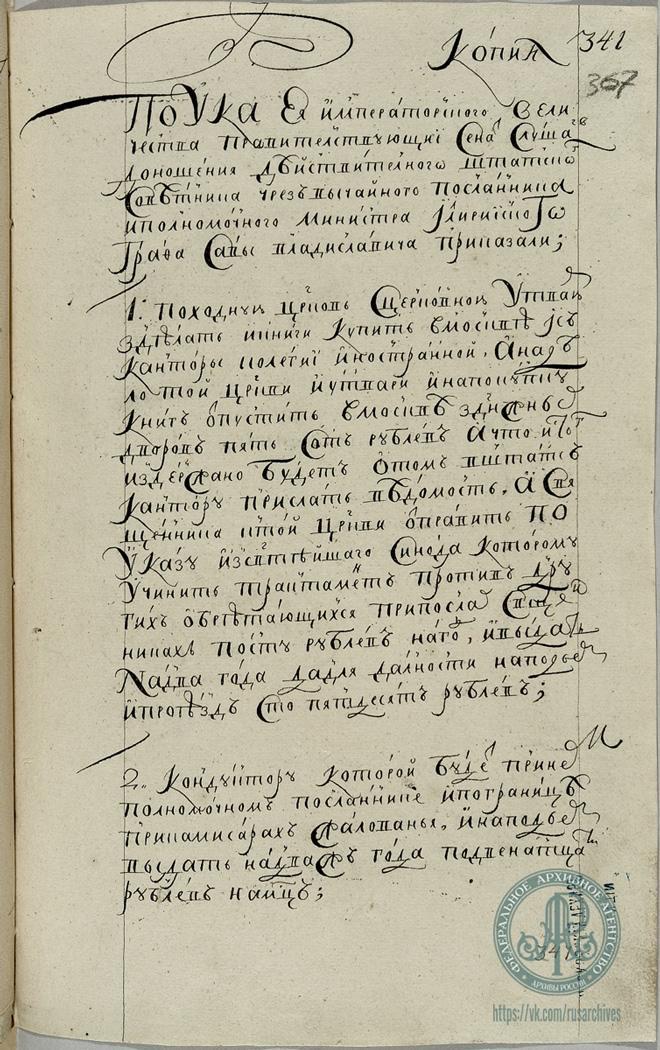 Копия
341
367
По Указу Ея императорского Вели
чества Правителствующиі Сенат Слушав
доношения дѣиствителного штатского
Советника чрезвычайного посланника
иполномочного министра јлирискогѡ
Графа Савы владиславича приказали;
1: походную церковь Сцерковною Утварю
здѣлать икниги купить вмосквѣ јсъ
канторы колегиї иностранной. Анадѣ
ло тои церкви иутвари инапокупку
книгъ отпустить вмосквѣ
дворовъ пять Сотъ рублевъ Ачто
издержано будетъ отомъ вштатсъ
кантору прислать вѣдомость. А Свя
щенника ктой церкви отправить По
Указу изсвятѣйшаго Синода которому
Учинить трактаментъ противъ дру
гихъ обретающихся припосла Свяще
никахъ посту рублевъ нагод, ивыдать
Надва года дадля далности наподъем
ипроѣздъ Сто пятдесятъ рублевъ;
2. Кондуктору которой будетъ прине
полномочномъ посланнике ипограницъ
прикамисарахъ жалованья, инаподъем
выдать надва года подвенатцати
рублевъ намѣцъ;
ФЕДЕРАЛЬНОЕ АРХИВНОЕ АГЕНТСТВО
АРХИВЫ РОССИИ
https://vk.com/rusarchives